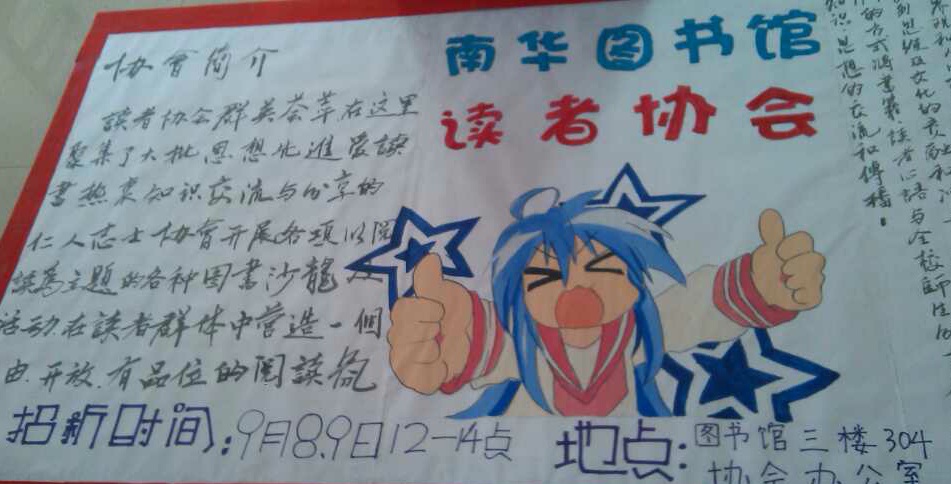 南华图书馆
读者协会
协會简介
讀者协会群英荟萃在这里
聚集了大批思想先進爱讀
書热衷知识交流与分享的
仁人志士协會开展各项以閱
讀為主題的各种图書沙龍
活动在讀者群体中营造一個
由.开放.有品位的閱讀氛
的方式鴻書籍讀者心語与全校師生的
知识思想的交流和傳播。
招新时间:9月8.9日12-14点
地点:图书馆三楼304
协会办公室